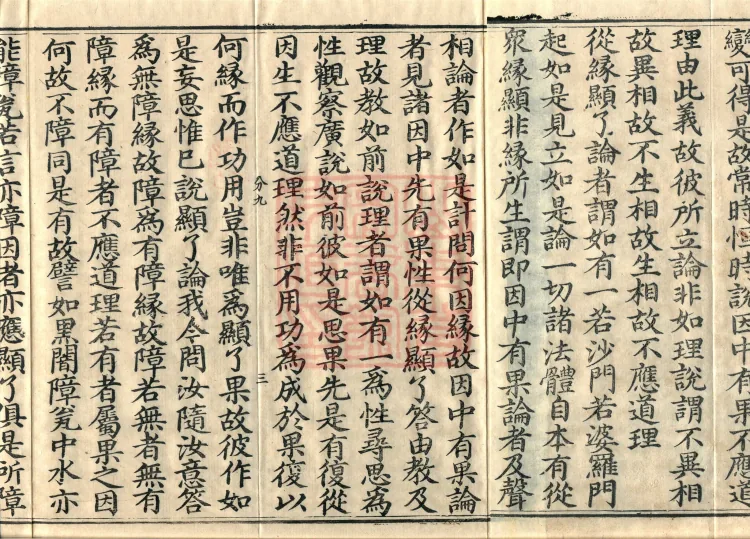 變可得是故常時恒時說因中有果不應道
理由此義故彼所立論非如理說謂不異相
故異相故不生相故生相故不應道理
從緣顯了論者謂如有一若沙門若婆羅門
起如是見立如是論一切諸法體自本有從
衆緣顯非緣所生謂即因中有果論者及聲
相論者作如是計問何因緣故因中有果論
者見諸因中先有果性從緣顯了答由教及
理故教如前說理者謂如有一爲性尋思爲
性觀察廣說如前彼如是思果先是有復從
因生不應道理然非不用功爲成於果復以
分九 三
何緣而作功用豈非唯爲顯了果故彼作如
是妄思惟已說顯了論我今問汝隨汝意答
爲無障緣故障爲有障緣故障若無者無有
障緣而有障者不應道理若有者屬果之因
何故不障同是有故譬如黑闇障瓮中水亦
能障瓮若言亦障因者亦應顯了俱是所障